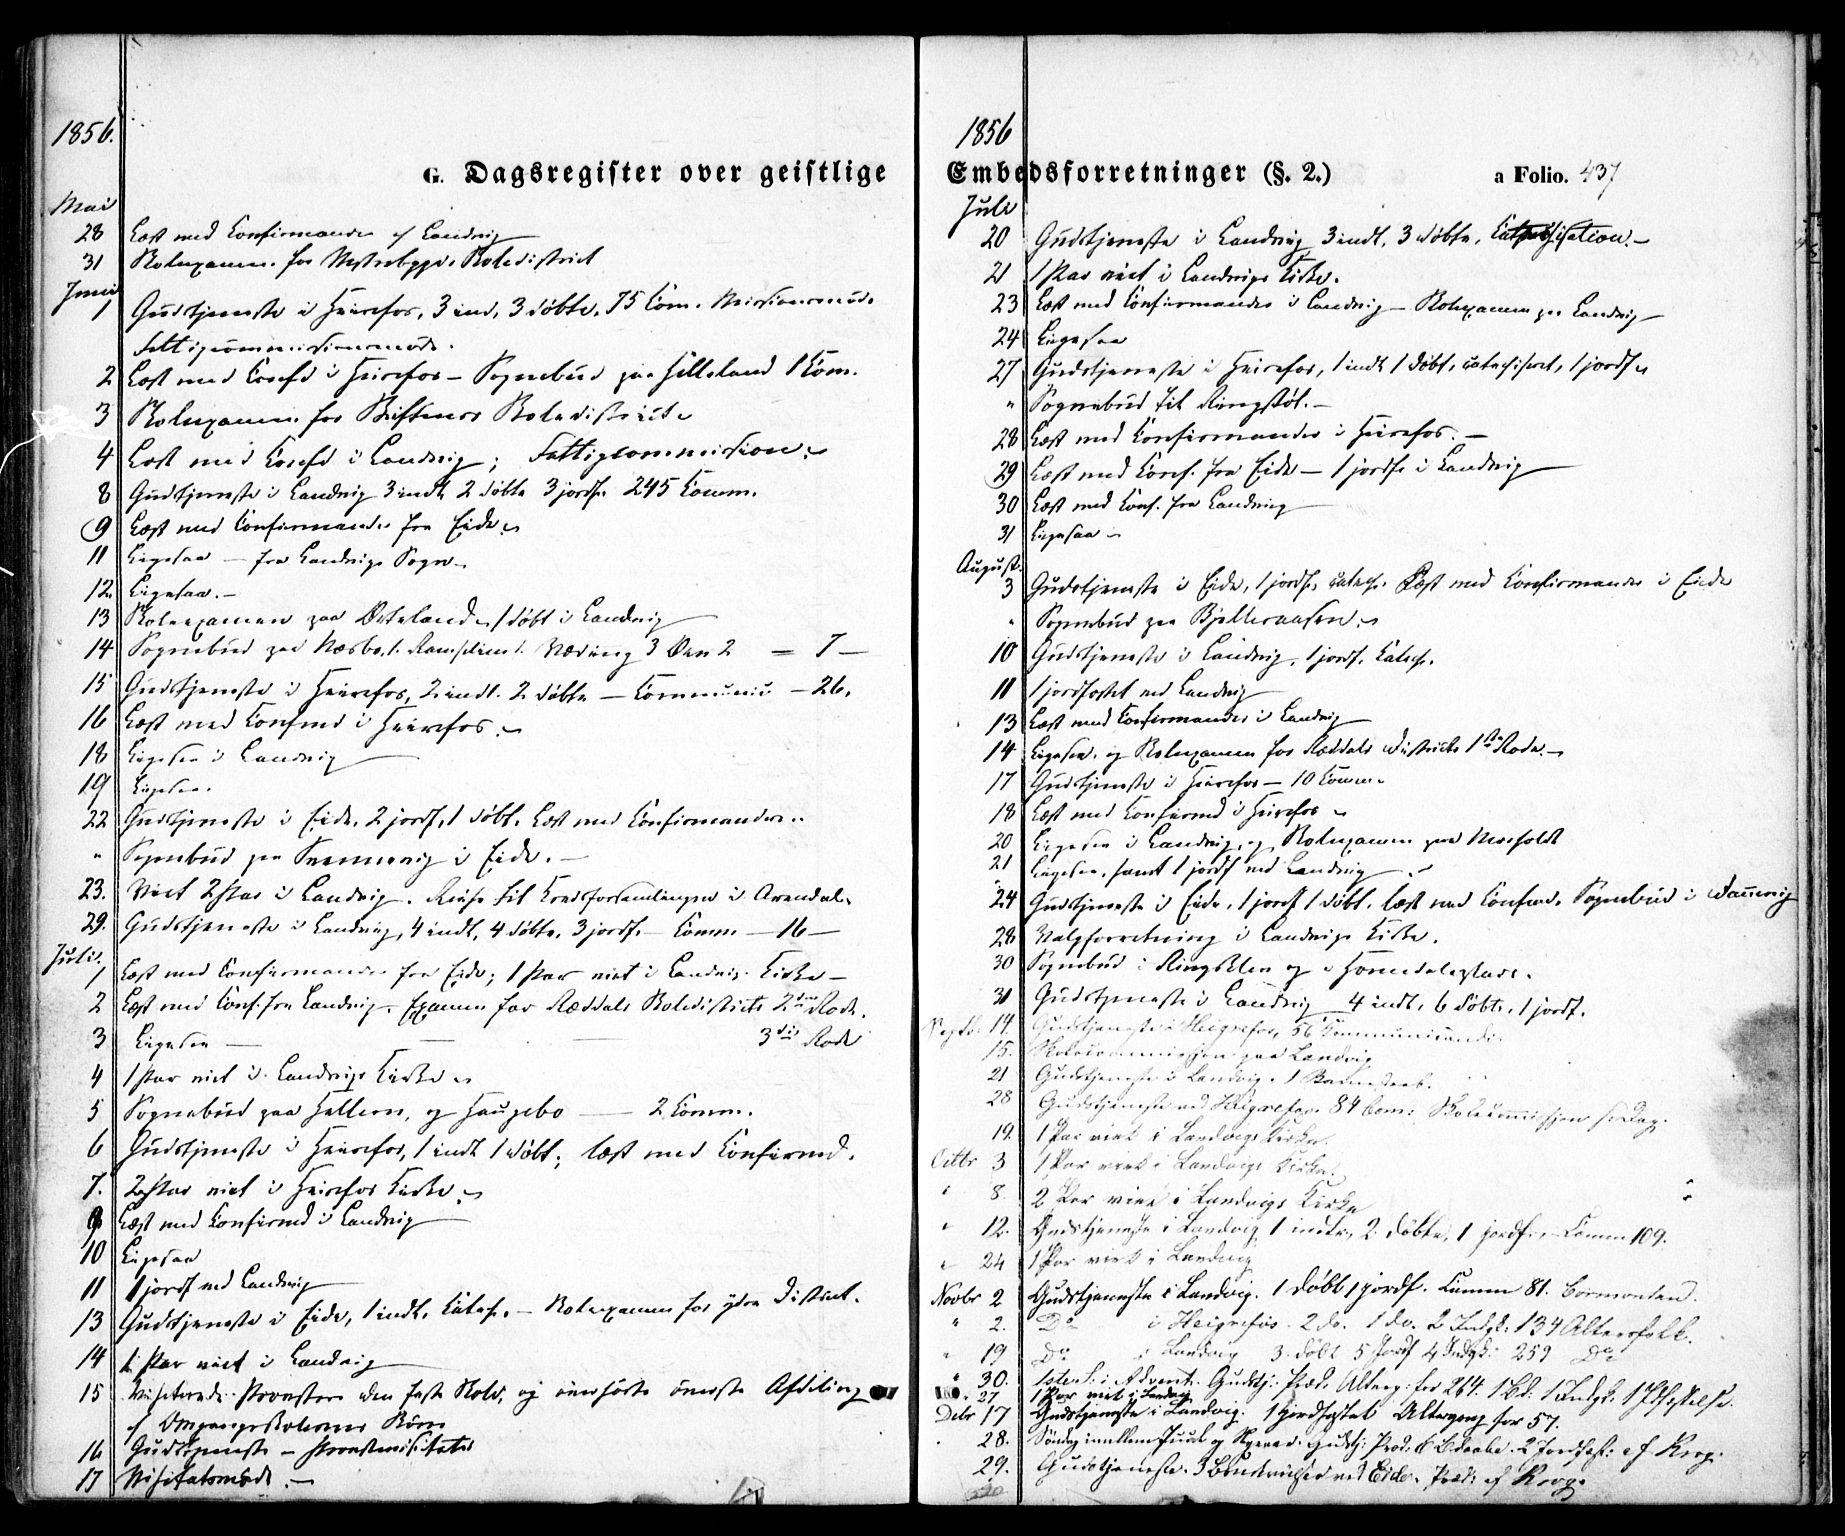 1856.
G. Dagsregister over geistlige
Mai
28 Læst med Confirmander af Landvig
31 Skolexamen for Vestrebygds Skoledistrict
Juni
1 Gudstjeneste i Heirefos, 3 ind, 3 döbte, 75 Com. Missionsmöde
Fattigcommissionsmöde.
2 Læst med Confd i Heirefos – Sognebud paa Hilleland 1 Kom.
3 Skolexamen for Skoledistricte
4 Læst med Confd i Landvig; Fattigcommission.
8 Gudstjeneste i Landvig 3 indt. 2 döbte 3 jordf. 245 Komm.
9 Læst med Confirmander fra Eide.
11 Ligesaa – fra Landvigs Sogn
12. Ligesaa. –
13 Skoleexamen paa 1 döbt i Landvig
14 Sognebud paa 3 2 = 7 –
15 Gudstjeneste i Heirefos, 2 indt. 2 döbte – Communic – 26.
16 Læst med Confmd i Heirefos.
18 Ligesaa i Landvig
19 Ligesaa.
22 Gudstjeneste i Eide. 2 jordf, 1 döbt. Læst med Confirmander.
" Sognebud paa i Eide. –
23. Viet 2 Par i Landvig. Reise til Kredsforsamlingen i Arendal.
29. Gudstjeneste i Landvig, 4 indt, 4 döbte, 3 jordf. – Komm. – 16 –
Juli.
1 Læst med Confirmander fra Eide; 1 Par viet i Landvigs Kirke –
2 Læst med Conf. fra Landvig. Examen for Ræddals Skoledistricts 2den Rode.
3 Ligesaa – – – 3die Rode
4 1 Par viet i Landvigs Kirke
5 Sognebud paa Hallern, og Haugebo – 2 Komm.
6 Gudstjeneste i Heirefos, 1 indt 1 döbt; læst med Confirmd.
7. 2 Par viet i Heirefos Kirke
9 Læst med Confirmd i Landvig
10 Ligesaa
11 1 jordf ved Landvig
13 Gudstjeneste i Eide, 1 indt. Catech. – Skolexamen for ydre District.
14 1 Par viet i Landvig
15 Visiterede Provsten den faste Skole, og överste Afdeling
af Omgangsskolernes Börn
16 Gudstjeneste – Provstevisitats
17 Visitatsmöde. –
1856
Embedsforretninger (§. 2.)
a Folio. 437
Juli
20 Gudstjeneste i Landvig 3 indt, 3 döbte, Catechisation. –
21 1 Par viet i Landvigs Kirke.
23 Læst med Confirmander i Landvig – Skolexamen paa Landvig
24 Ligesaa
27 Gudstjeneste i Heirefos, 1 indt 1 döbt, catechiseret, 1 jordf
" Sognebud til Ringstöl. –
28 Læst med Confirmander i Heirefos. –
29 Læst med Conf. fra Eide – 1 jordf. i Landvig
30 Læst med Conf. fra Landvig
31 Ligesaa
August.
3 Gudstjeneste i Eide, 1 jordf, catech. Læst med Confirmander i Eide
" Sognebud paa
10 Gudstjeneste i Landvig, 1 jordf. Catech.
11 1 jordfæstet ved Landvig
13 Læst med Confirmander i Landvig
14 Ligesaa. og Skolexamen for Ræddals Districts 1ste Rode. –
17 Gudstjeneste i Heirefos – 10 Komm.
18 Læst med Confirmd i Heirefos
20 Ligesaa i Landvig, og Skolexamen paa
21 Ligesaa, samt 1 jordf ved Landvig
24 Gudstjeneste i Eide, 1 jordf 1 döbt. læst med Confmd. Sognebud i
28 Valgforretning i Landvigs Kirke.
30 Sognebud i og i
31 Gudstjeneste i Landvig 4 indt, 6 döbte, 1 jordf.
Septbr. 14. Gudstjeneste i Heigrefos, 56 Communicande.
15. Skolecommission paa Landvig
21 Gudstjeneste i Landvig. 1 Barnedaab.
28 Gudstjeneste ved Heigrefos. 84 Com: Skolecommission s. Dag.
19. 1 Par viet i Landvigs Kirke.
Octbr 3 1 Par viet i Landvigs Kirke.
" 8. 2 Par viet i Landvigs Kirke
" 12. Gudstjeneste i Landvig 1 indtr, 2 döbte, 1 jordf., – Comm 109.
" 24 1 Par viet i Landvig
Novbr 2 Gudstjeneste i Landvig. 1 döbt 1 jordf. Comm 81.
" 2. Do i Heigrefos. 2 do. 1 do. 2 Indgk: 134 Altersfolk.
" 19 Do i Landvig 3 döbt 5 Jordf 4 Indgk: 259 Do
" 30. 1ste S: i Advent. Gudstj: Præd. Alterg: for 264. 1 Bd: 1 Indgk. 1 Jdfæstelse.
27 1 Par viet i Landvig
Debr 17 Gudstjeneste i Landvig. 1 jordfæstet Altergang for 57.
" 28. Söndag imellem Juul og Nyeaar: Gudstj: Præd. 6 Bdaabe. 2 Jordfæst: af Krog.
29. Gudstjeneste. 3 Brudevielser ved Eide. Præd: af Krog.